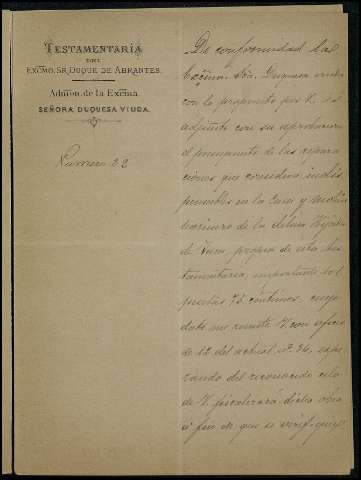 TESTAMENTARÍA
DEL
EXCMO. SR. DUQUE DE ABRANTES.
Admon. de la Excma.
SEÑORA DUQUESA VIUDA.
Numero 22
De conformidad la
Excma. Sra. Duquesa viuda
con lo propuesto por V.
adjunto con su aprobacion
el presupuesto de las repara
ciones que considera indis
pensables en la Casa y molino
harinero de la
de propia de esta tes
tamentaria, importante
pesetas 75 centimos, cuyo
dato me remite V. con oficio
de 12 del actual nº 36, espe
rando del reconocido celo
de V. fiscalizará dicha obra
á fin de que se verifique